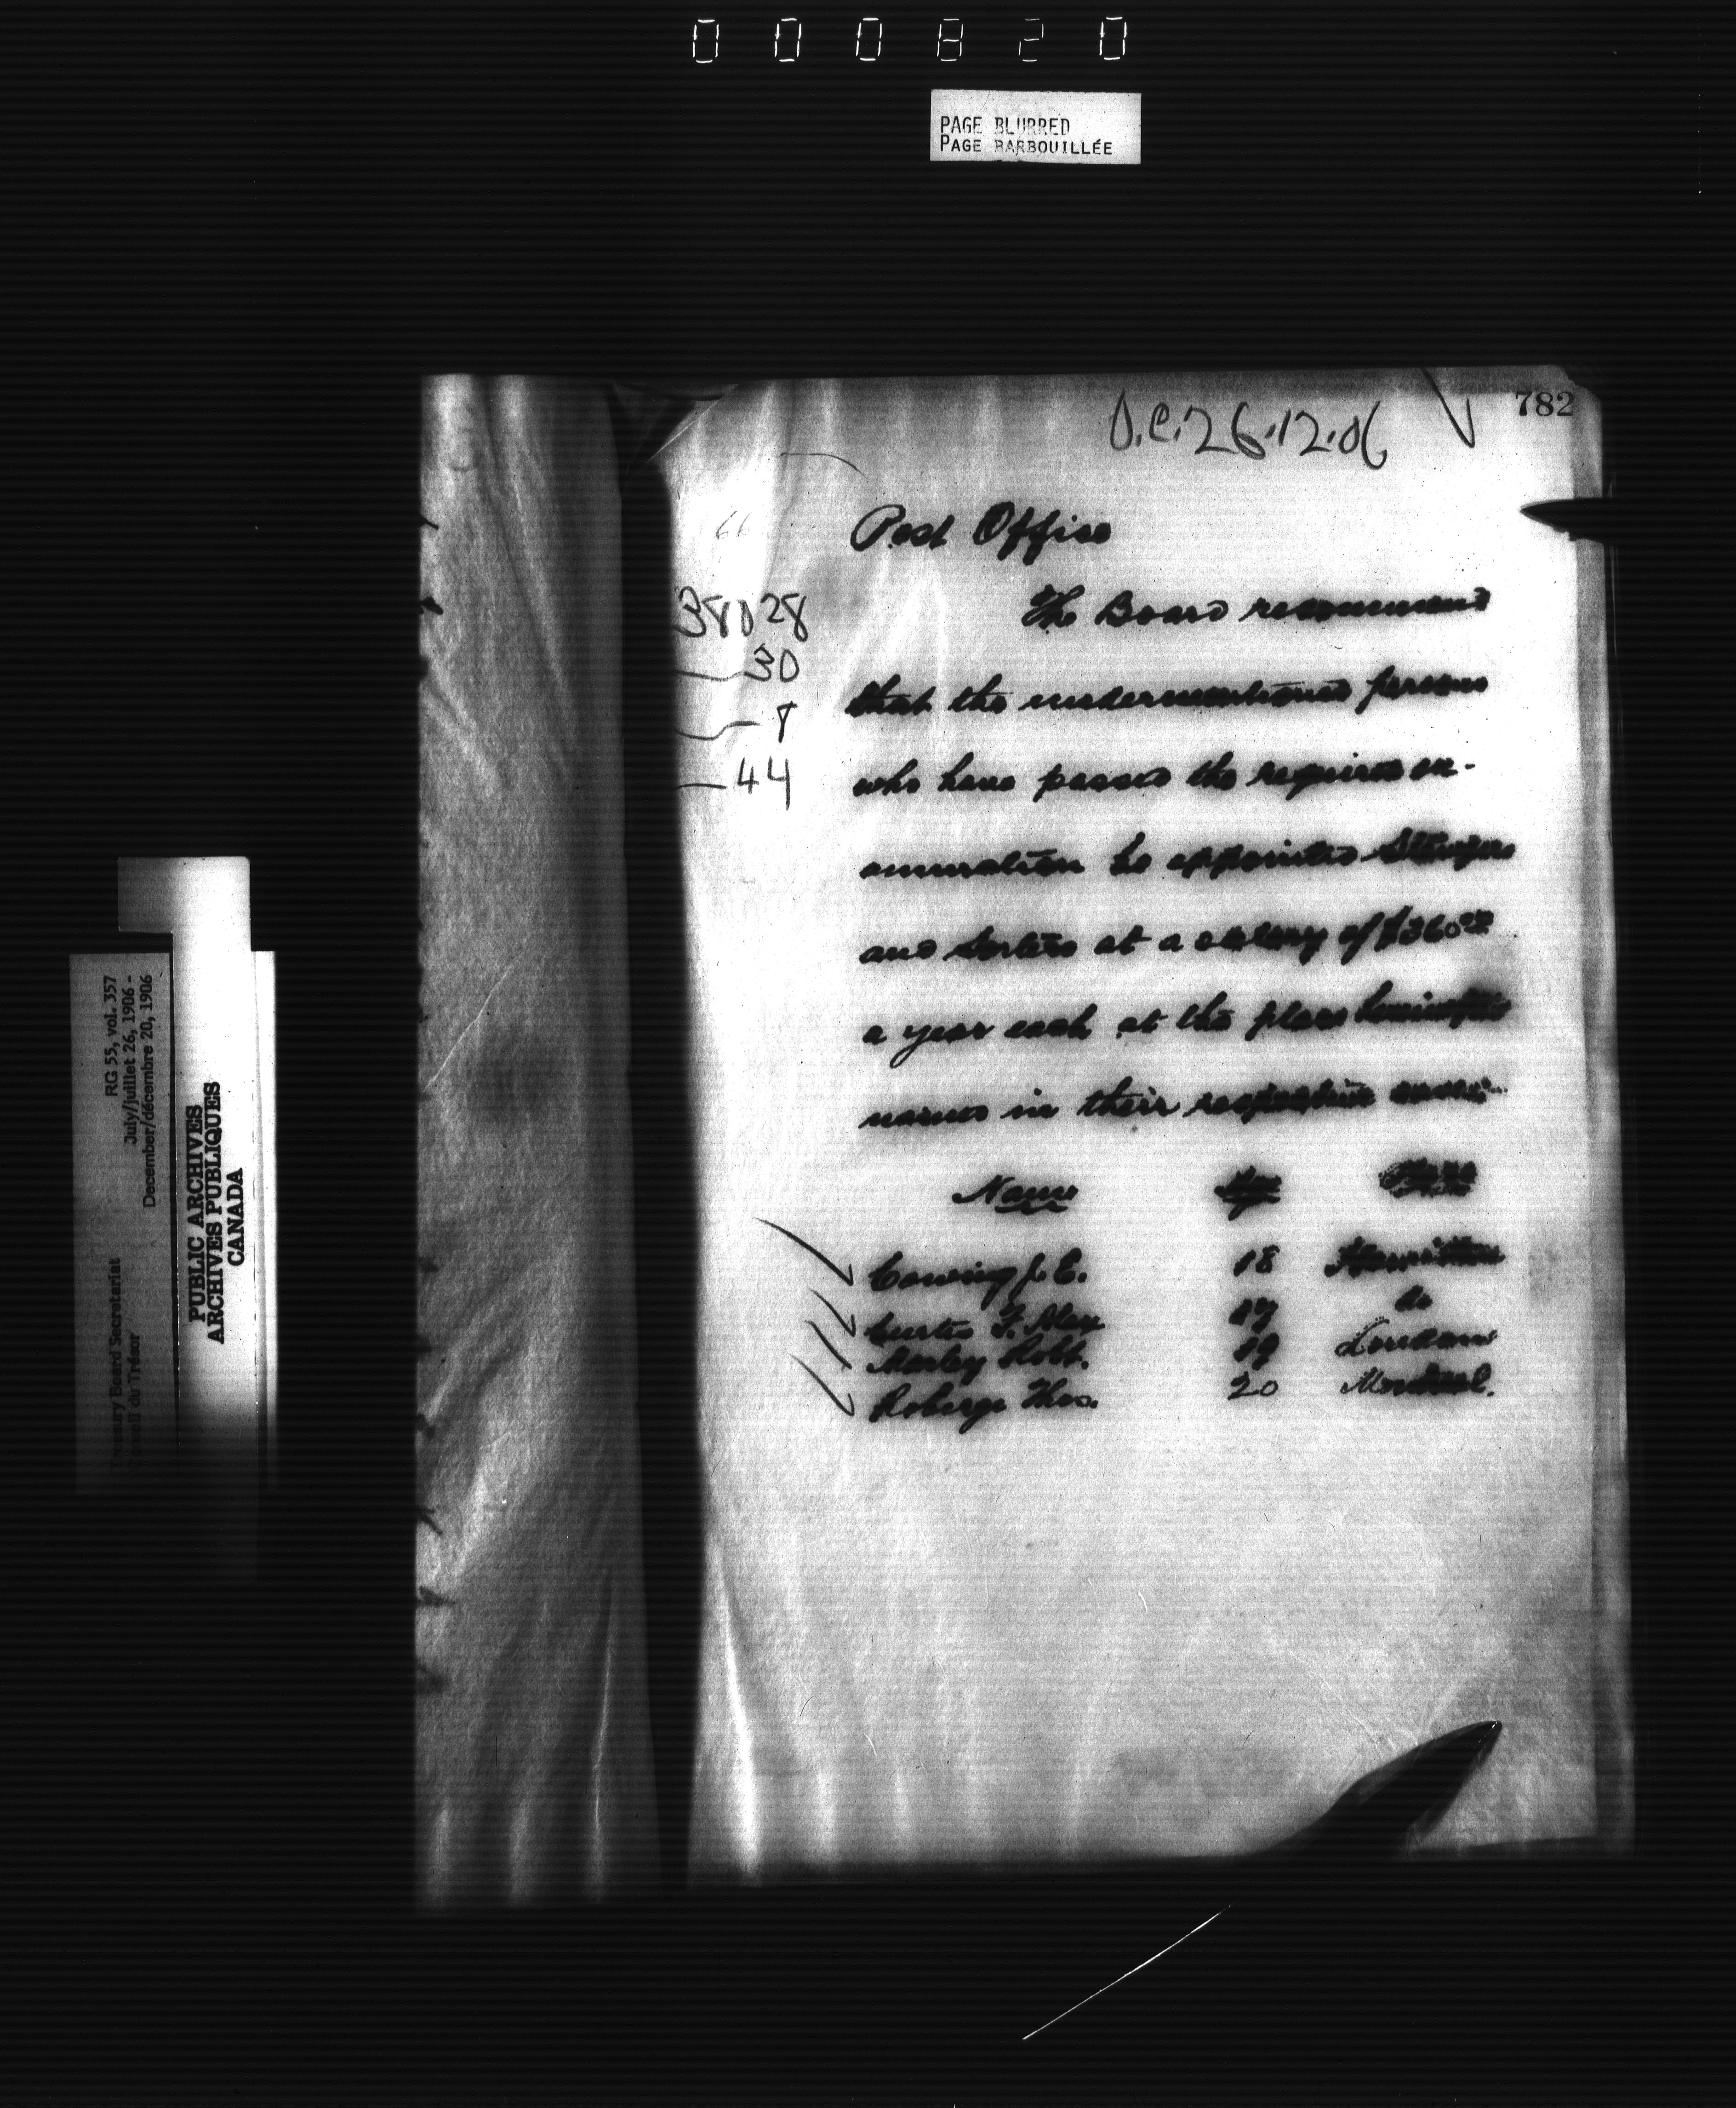 000820
PAGE BLURRED
PAGE BARBOUILLÉE
782
O.C. 26.12.06
66
Post Office
38028
30
44
The Board recommend
that the undermentioned persons
who have passed the required ex-
amination be appointed Stampers
and Sorters at a salary of $360.00
a year each at the place hereinafter
named in their respective
Name Age Place
Cowing J. E. 18 Hamilton
Curtis F. Alex do
Marley Robt. 19 London
Roberge Thos. 20 Montreal.
RG 55, vol. 357
July/juillet 26, 1906 -
December/décembre 20, 1906
Treasury Board Secretariat
Conseil du Trésor
PUBLIC ARCHIVES
ARCHIVES PUBLIQUES
CANADA